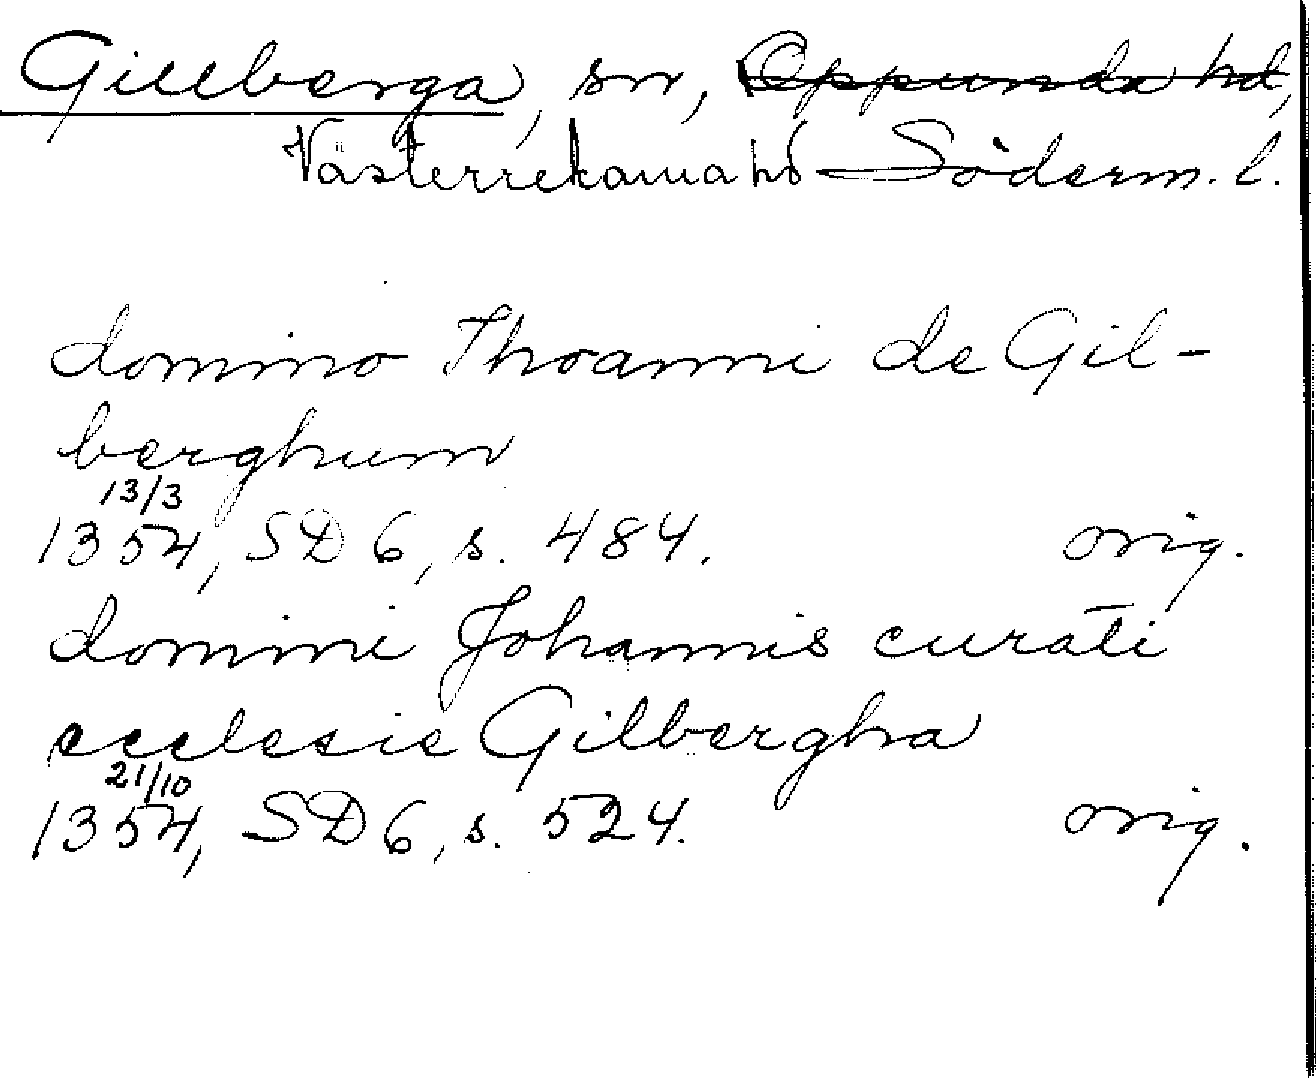 Gillberga, sn, Oppunda hd,
Västerrekarna hd Söderm. l.
domino Thoanni de Gil-
berghum
13/3
1354, SD 6, s. 484. orig.
domini Johannis curati
ecclesie Gilbergha
21/10
1354, SD 6, s. 524. orig.